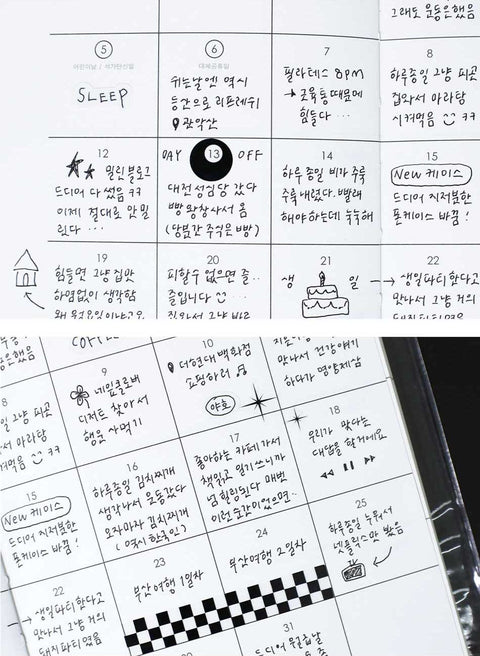 그래도 운동은했음
5
어린이날 / 석가탄신일
SLEEP
6
대체공휴일
쉬는날엔 역시
등산으로 리프레쉬
관악산
7
필라테스 8PM
→ 근육통때문에
힘들다 ...
8
하루종일 그냥 피곤
집와서 마라탕
시켜먹음
12
밀린 블로그
드디어 다 썼음 ㅋㅋ
이제 절대로 안 밀
린다 ...
DAY 13 OFF
대전 성심당 갔다
빵 왕창사서 옴
(당분간 주식은 빵)
14
하루 종일 비가 주룩
주룩 내렸다. 빨래
해야하는데 눅눅해
15
New 케이스
드디어 지저분한
폰케이스 바꿈!
19
힘들면 그냥 집앞
하염없이 생각함
왜 월요일이냐고요
20
피할수 없으면 즐..
즐입니다
집와서 그냥 바로
21
생 일
22
→ 생일파티 한다고
만나서 그냥 거의
돼지파티였음
운동은했음
COFFEE
9
네잎클로버
디저트 찾아서
행운 사먹기
10
더현대 백화점
쇼핑하러
야호
만나서 건강얘기
하다가 영양제삼
8
그냥 피곤
와서 마라탕
켜먹음
15
New 케이스
드디어 지저분한
폰케이스 바꿈!
16
하루종일 김치찌개
생각나서 운동갔다
오자마자 김치찌개
(역시 한국인)
17
좋아하는 카페 가서
책읽고 일기쓰니까
넘 힐링된다 매번
이런 순간이었으면..
18
우리가 맞다는
대답을 할거예요
22
→ 생일파티한다고
만나서 그냥 거의
돼지파티였음
23
부산여행 1일차
24
부산여행 2일차
25
하루종일 누워서
넷플릭스만 봤음
30
31
드디어 월급날